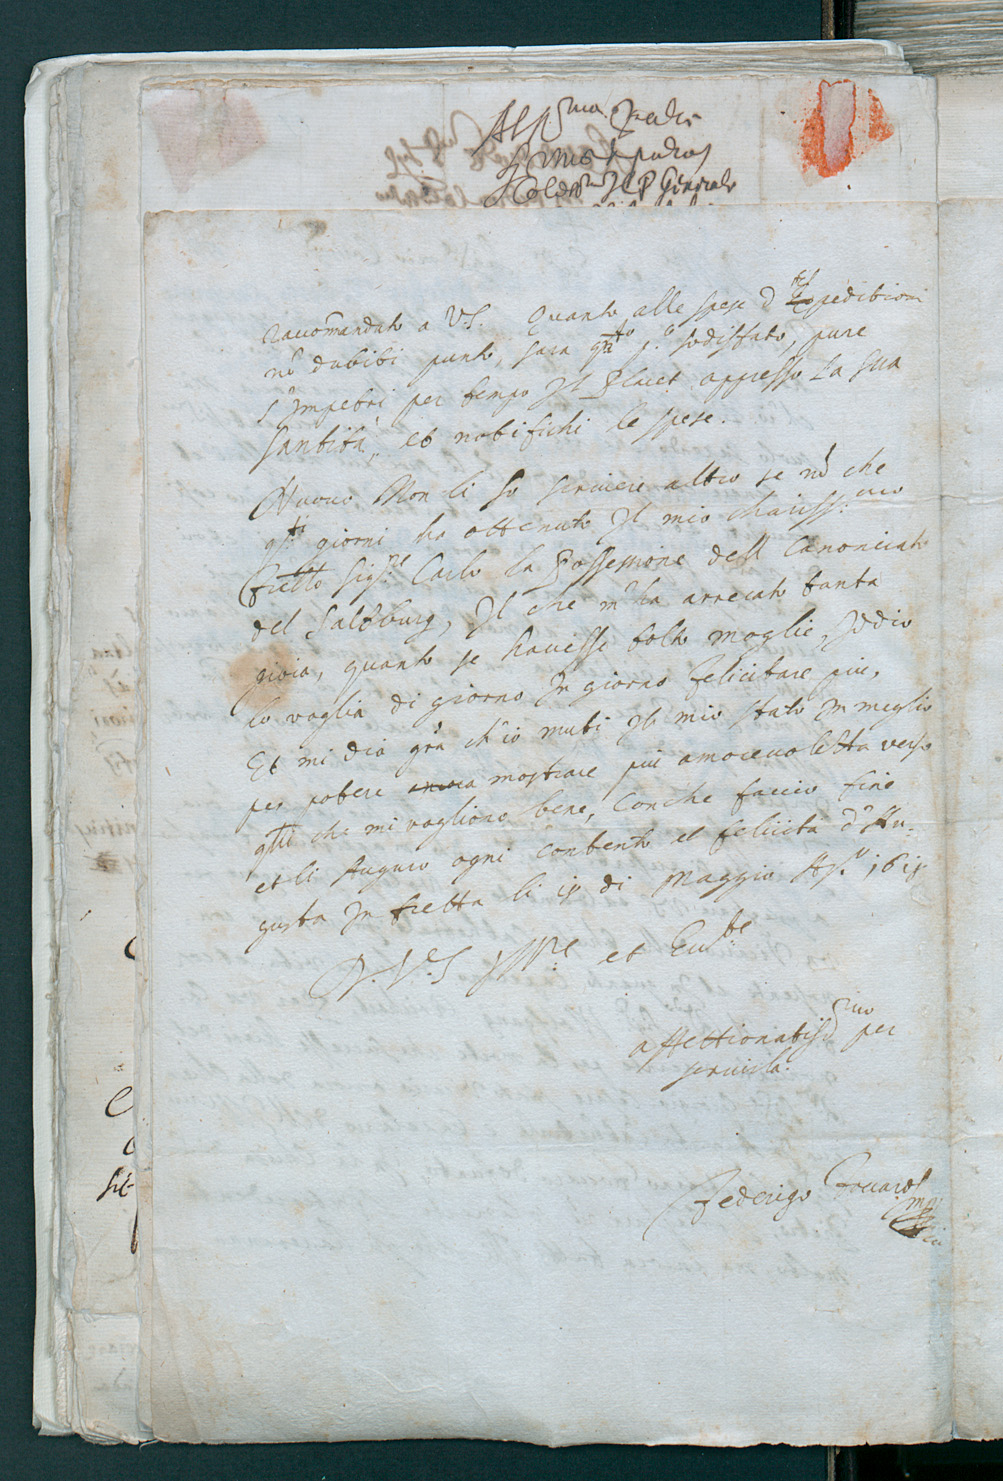 Al R.mo Padre
Il P. Generale
racom̃andato a V.S. Quanto alle spese d'Expeditioni
nõ dubiti punto, sara q.to p.o sodisfato, pure
s'impetri per tempo Il Placet appresso La Sua
Santità, et notifichi le spese.
Nuovo Non li so scrivere altro se nõ che
q.ti giorni ha ottenuto Il mio chariss.mo
fratello Sig.r Carlo la Possessione dell Canonicato
del Saltzburg, Il che m'ha arrecato tanta
gioia, quanto se havesse tolto moglie, Iddio
lo voglia di giorno In giorno felicitare piu,
Et mi dia gr̃a ch'io muti Il mio stato In meglio
per potere ancora mostrare piu amorevolezza verso
q.lli che mi vogliono bene, Con che faccio fine
et li Auguro ogni contento et felicità d'Au-
gusta In fretta li 18 di Maggio A.o 1618
D. V.S. Ill.re et Ecc.te
affettionatiss.mo per
servirla.
Federigo